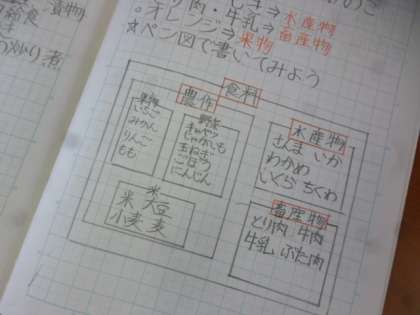 漬物
り肉・牛乳⇒畜産物
。オレンジ⇒果物
水産物
☆ベン図で書いてみよう
食料
農作
果物
いちご
みかん
りんご
もも
野菜
キャベツ
じゃがいも
玉ねぎ
ごぼう
にんじん
米
米 大豆
小麦 麦
水産物
さんま いか
わかめ
いくら ちくわ
畜産物
とり肉 牛肉
牛乳 ぶた肉